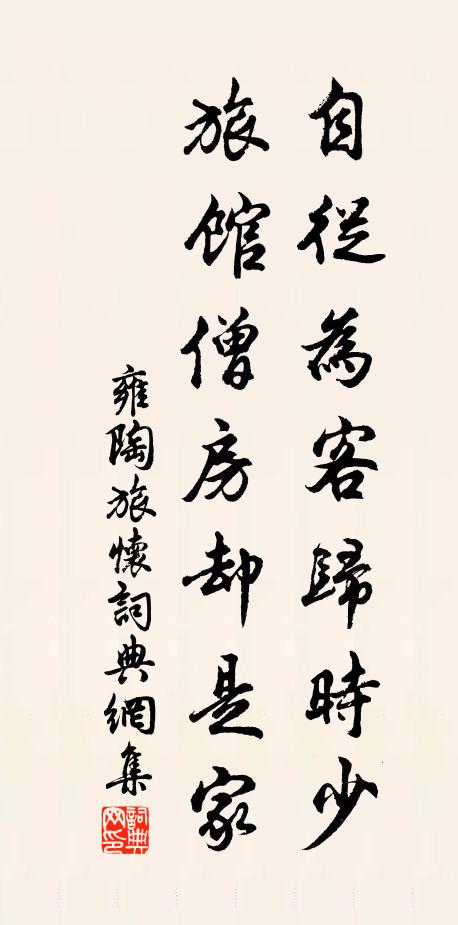 自從為客歸時少
旅館僧房却是家
雍陶旅懷詞典網集
詞典網印